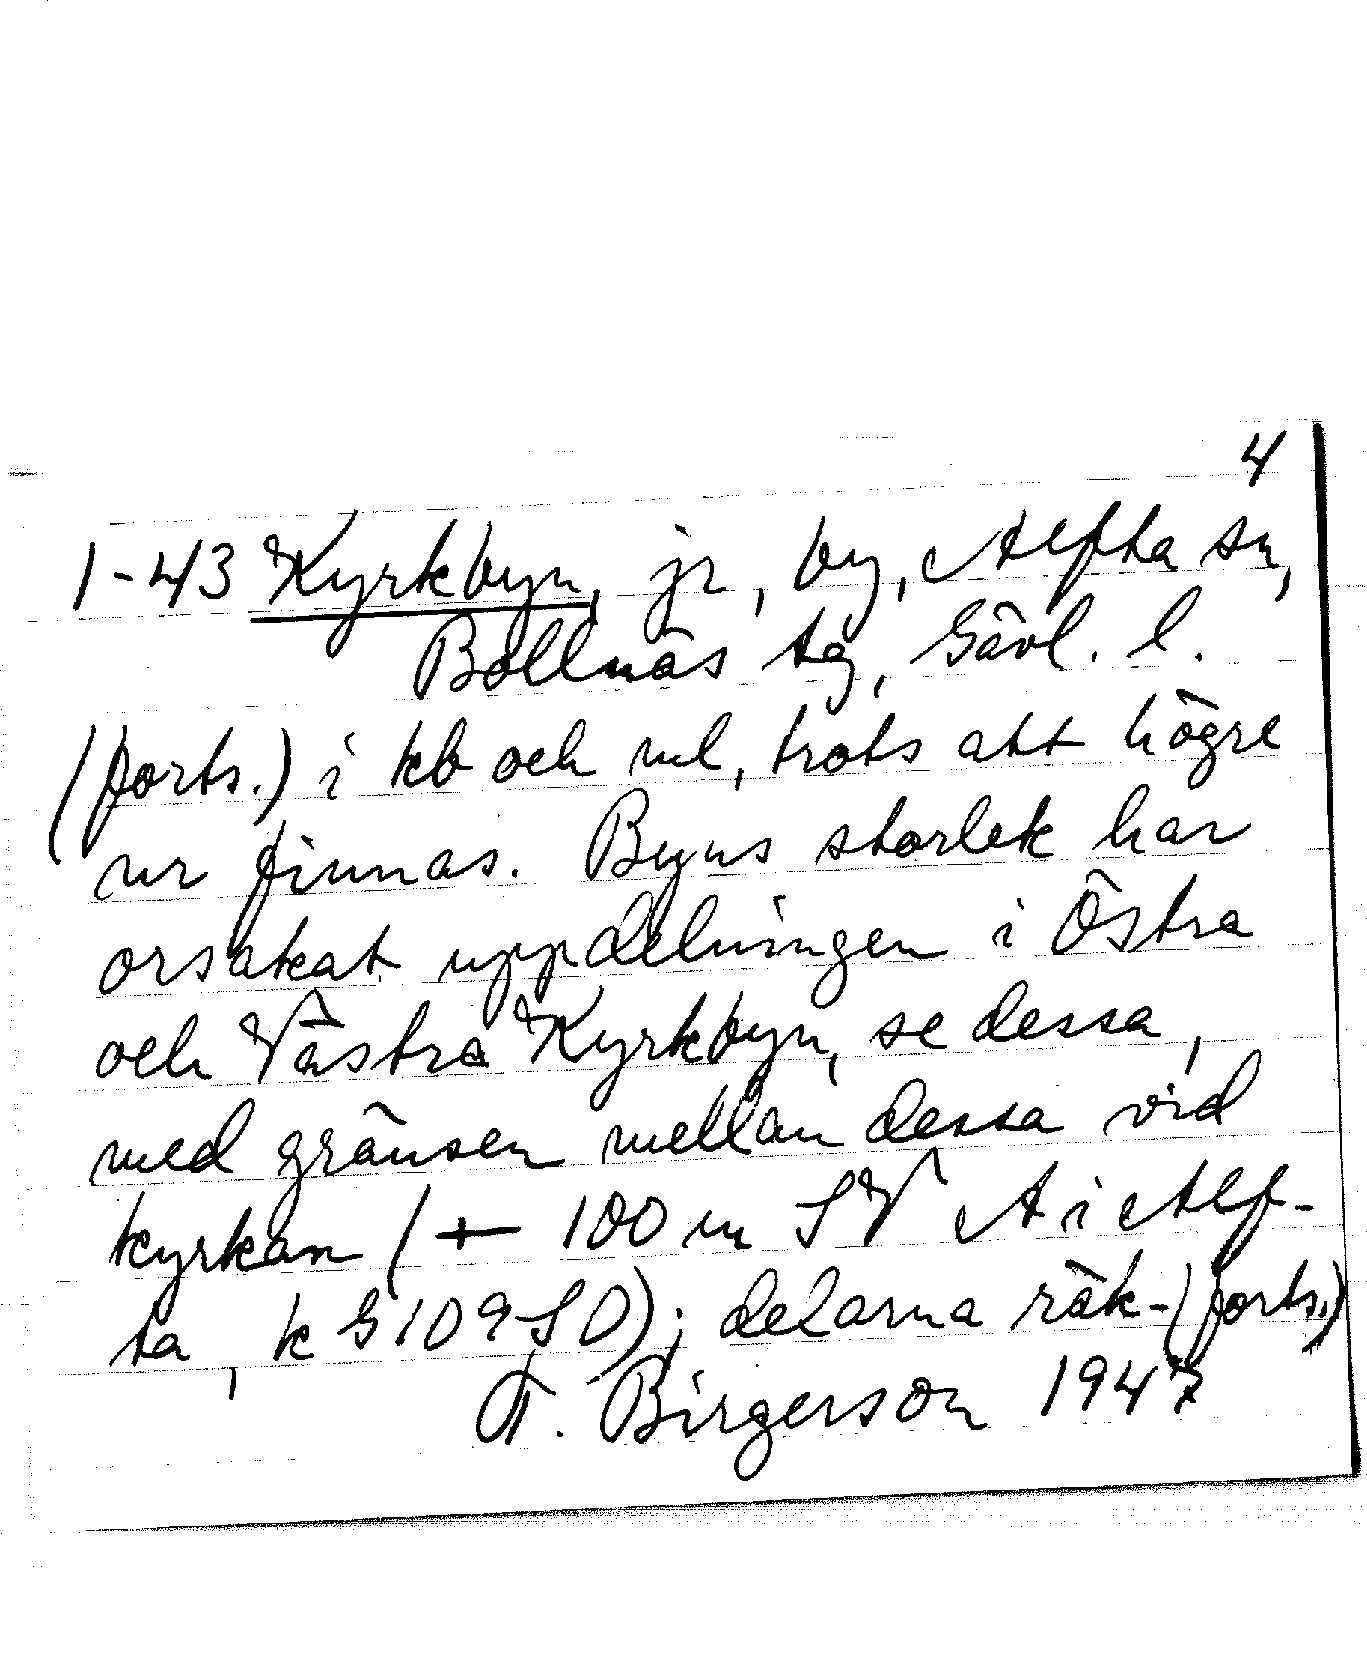 4
1-43 Kyrkbyn, jr, by, Alfta sn,
Bollnäs tg, Gävl. l.
(forts.) i kb och ml, trots att högre
nr finnas. Byns storlek har
orsakat uppdelningen i Östra
och Västra Kyrkbyn, se dessa,
med gränsen mellan dessa vid
kyrkan (+ 100 m SV A i Alf-
ta, k G 109 SO); delarna räk-(forts.)
T. Birgerson 1947